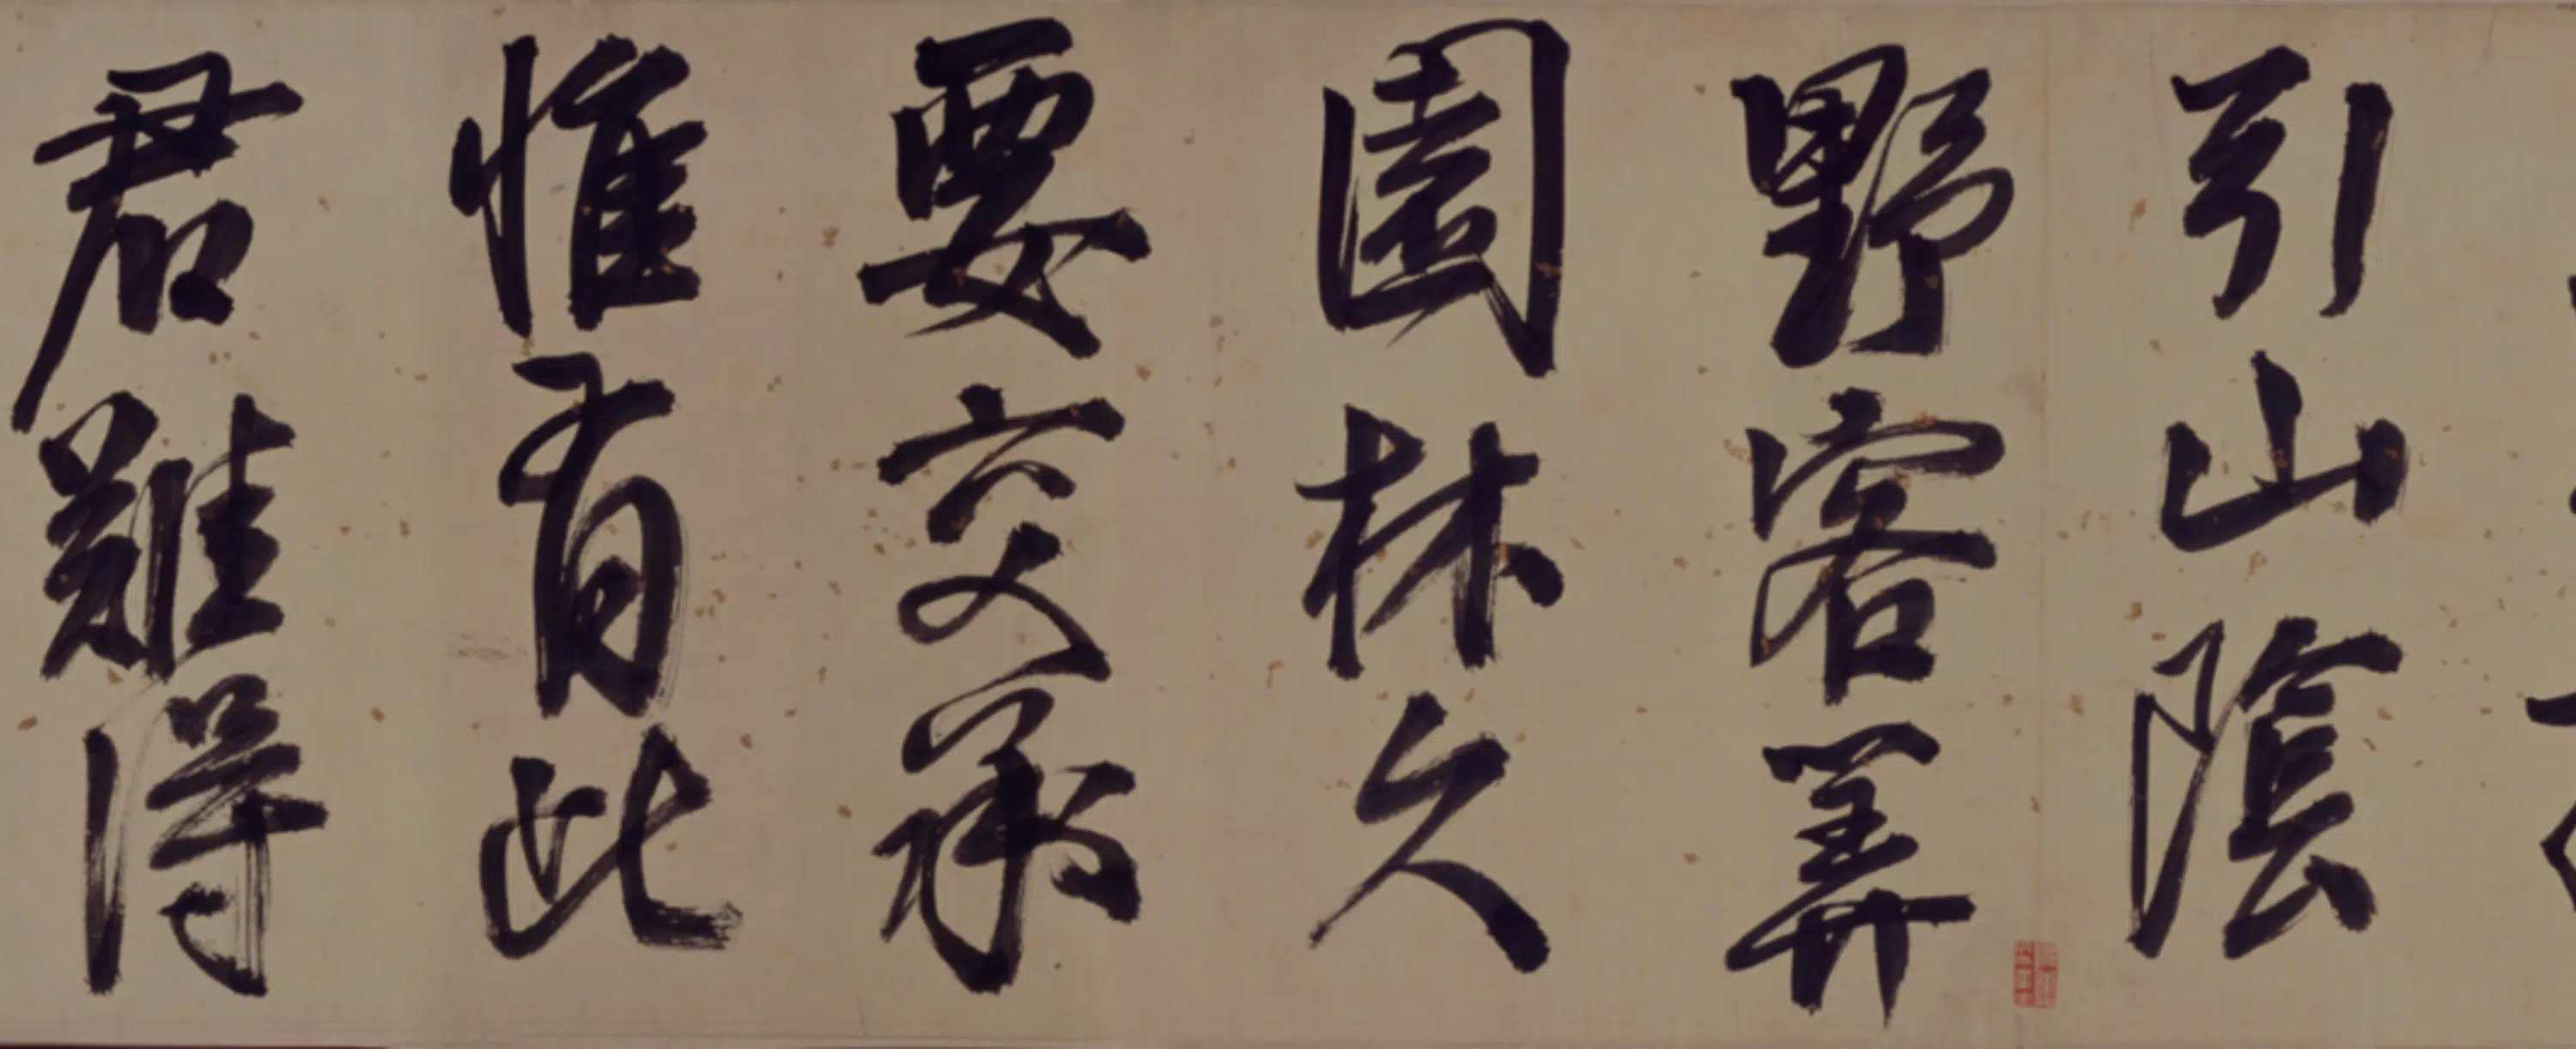 引山陰
野客筭
園林久
要交承
惟有此
君難得